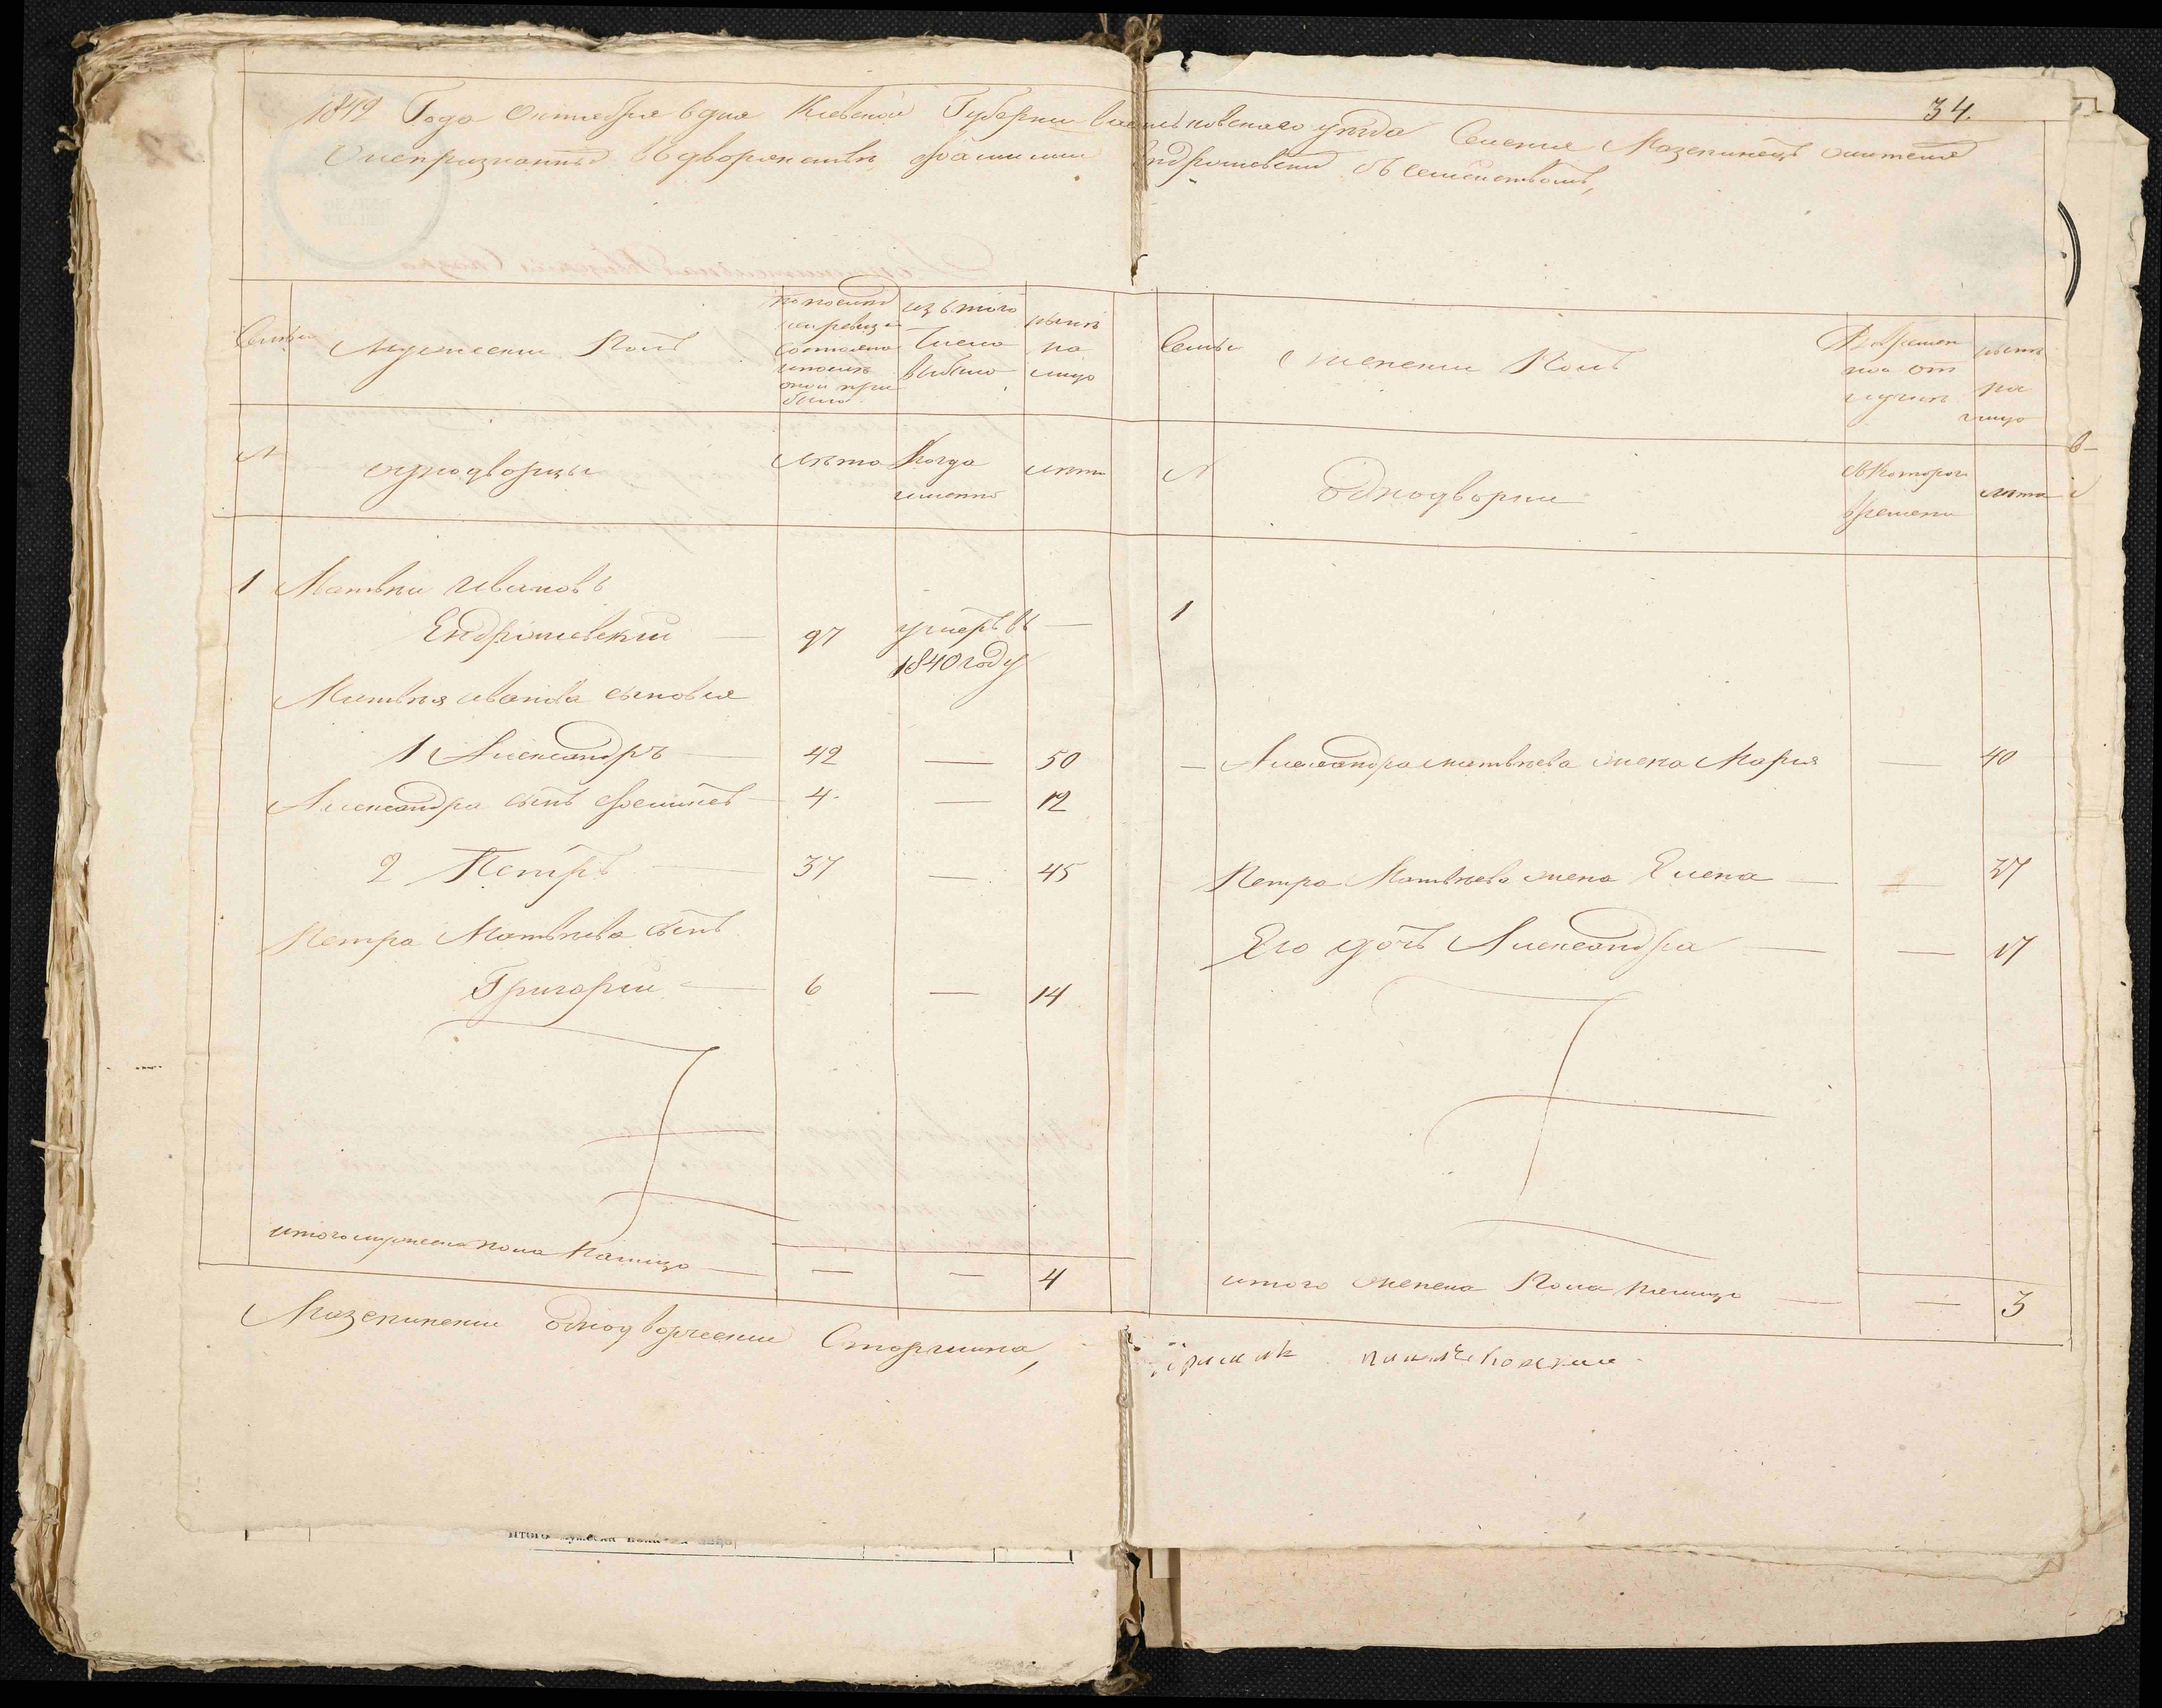 34.
1842 Года Октября 6 дня Киевской Губернии Васильковскаго уезда Селения Мазепинец жители
Онепризнанный вдворянстве фамилии Ендрошевский съ семействомъ,
Семьи
Мужески Полъ
по последней ревизии состояло и после оной прибыло
изъ того числа выбыло
ныне на лицо
Семьи
Женски Полъ
Во времен ной от лучке
ныне на лицо
№
однодворцы
Лета
Когда именно
лета
№
Однодворки
Скоторого времени
лета
1 Матвеи Ивановъ
Ендрошевский — 97 умеръ въ 1840 году —
1
Матвея иванова сыновья
1 Александръ — 42 — 50
Александра матвеева жена Мария — 40
Александра сынъ — 4 — 12
2 Петръ — 37 — 45
Петра Матвеева жена Елена — — 37
Петра Матвеева сынъ
Его дочь Александра — — 17
Григории — 6 — 14
итого мужеска пола налицо — — — 4
итого женска Пола налицо — — 3
Мазепински однодворчески Старшина,